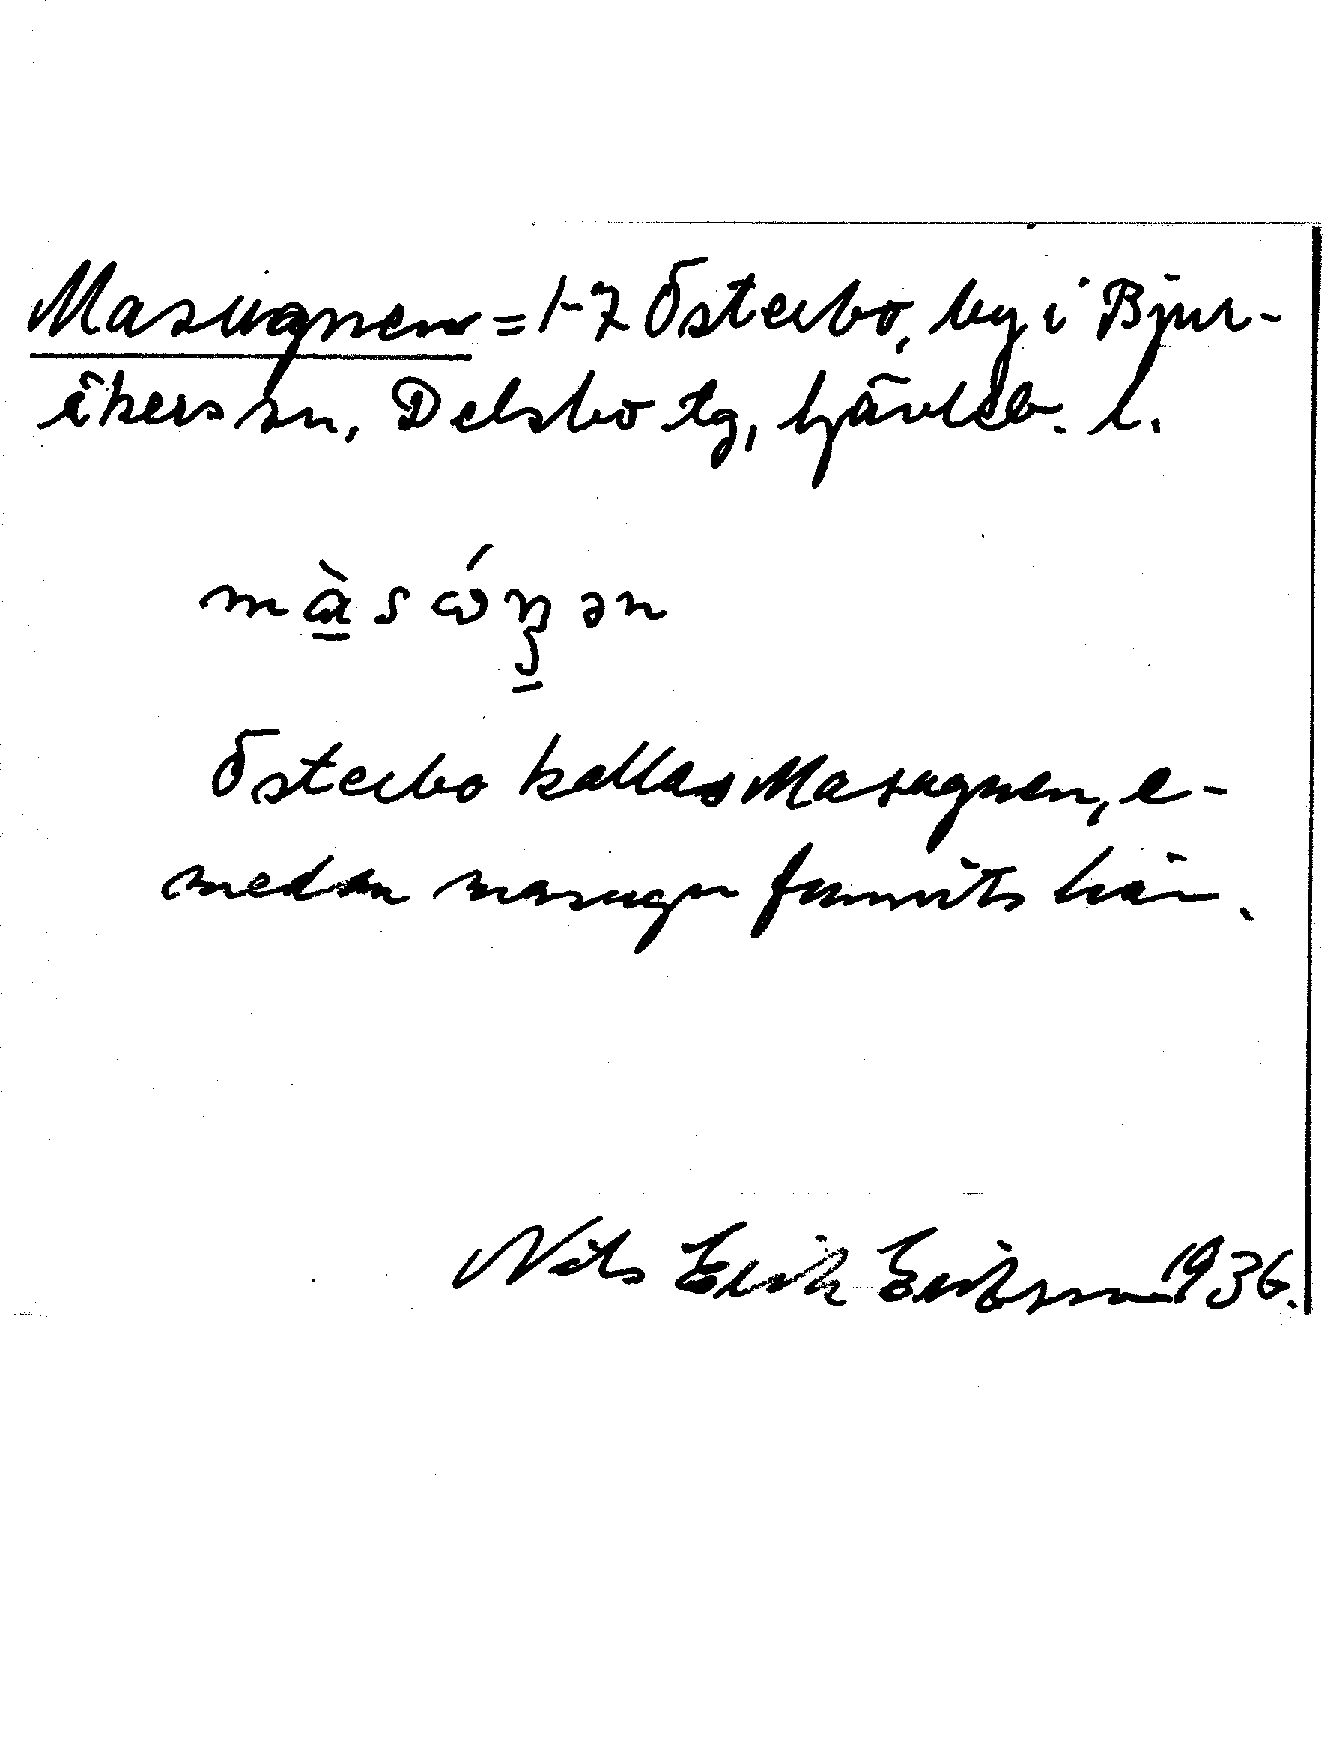 Masugnen = 1-7 Österbo, by i Bjur-
åkers sn, Delsbo tg, Gävleb. l.
mɑ̀sώŋən
Österbo kallas Masugnen, e-
medan masugn funnits här.
Nils Erik Eriksson 1936.